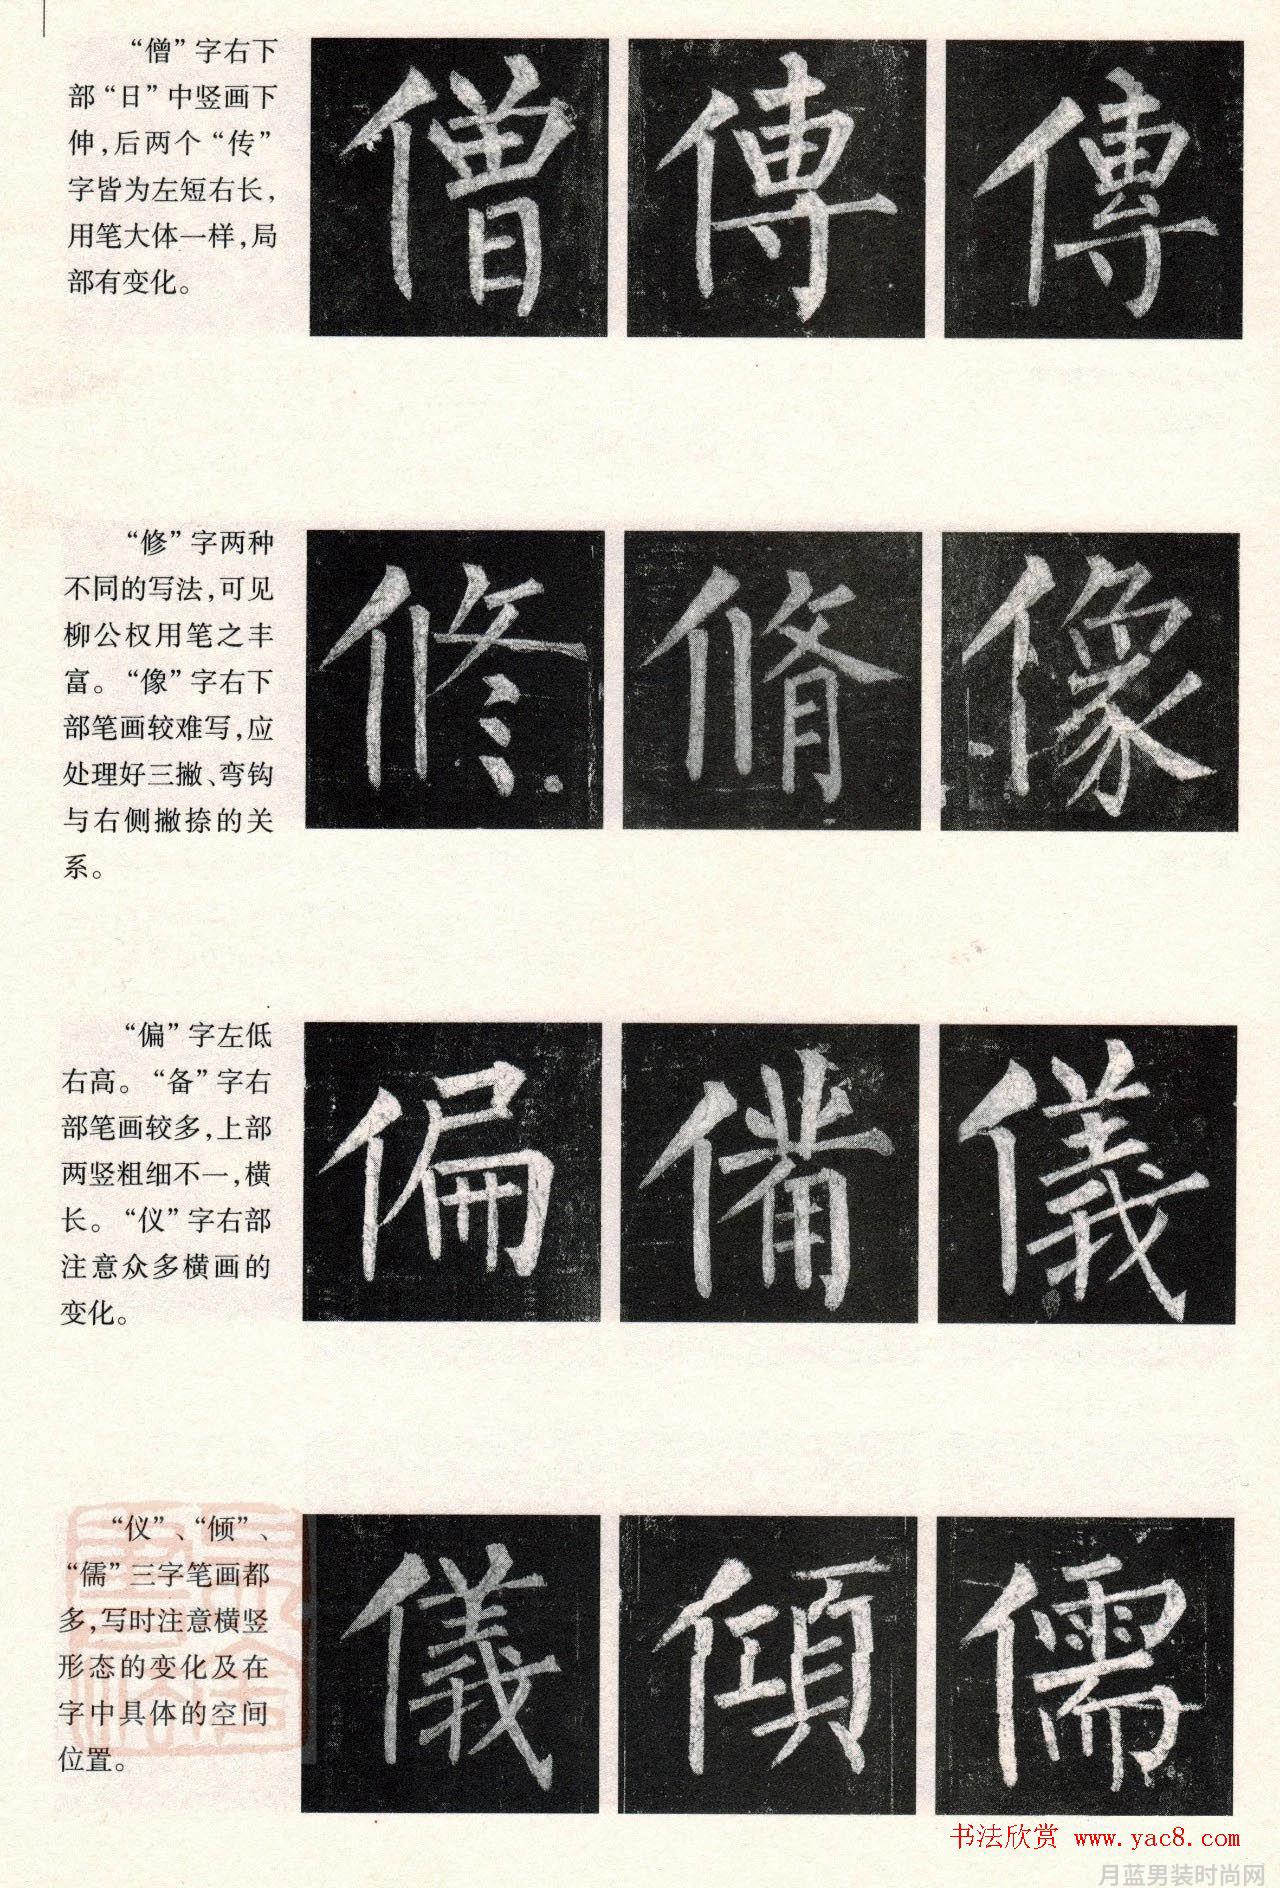 “僧”字右下
部“日”中竖画下
伸,后两个“传”
字皆为左短右长,
用笔大体一样,局
部有变化。
僧 傳 傳
“修”字两种
不同的写法,可见
柳公权用笔之丰
富。“像”字右下
部笔画较难写,应
处理好三撇、弯钩
与右侧撇捺的关
系。
修 脩 像
“偏”字左低
右高。“备”字右
部笔画较多,上部
两竖粗细不一,横
长。“仪”字右部
注意众多横画的
变化。
偏 備 儀
“仪”、“倾”、
“儒”三字笔画都
多,写时注意横竖
形态的变化及在
字中具体的空间
位置。
儀 傾 儒
书法欣赏 www.yac8.com
月蓝男装时尚网